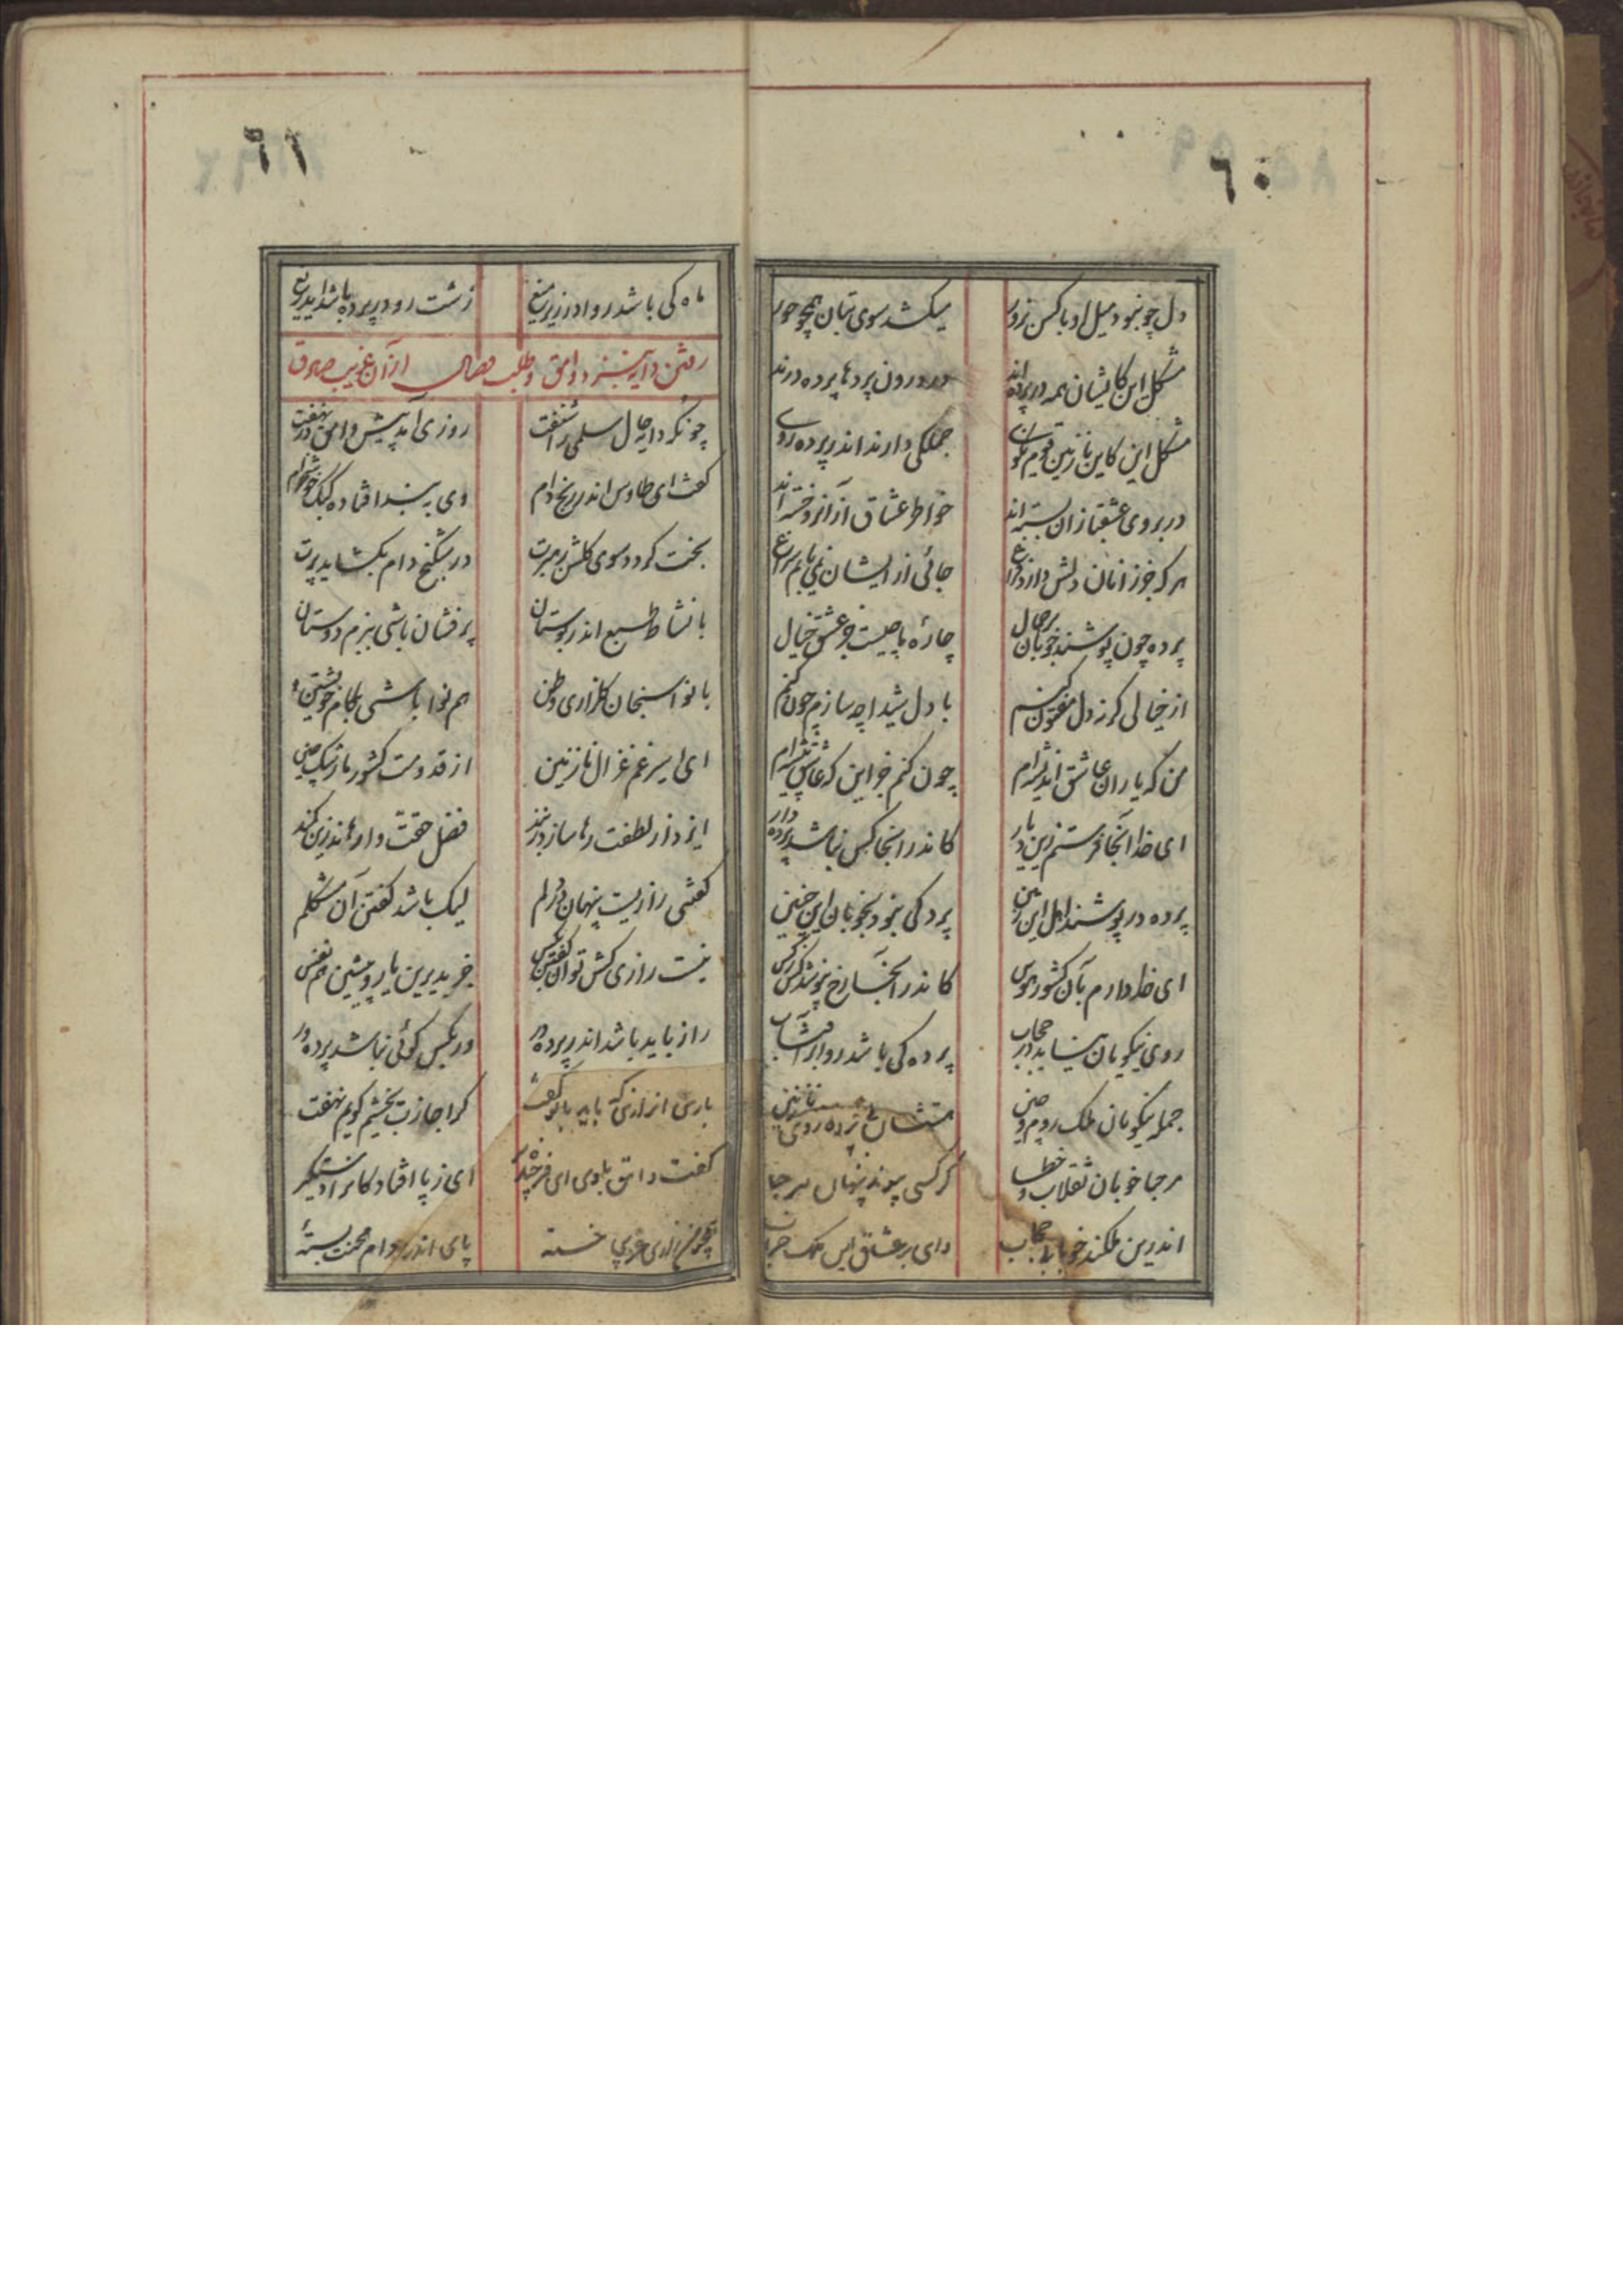 ٦٠
دل چو نبود میل او با کس بزور میکشد سوی بتان همچو حور
مشکل این کایشان همه در پرده‌اند در درون پردها پرده درند
مشکل این کاین نازنین قوم نکوی جملگی دارند اندر پرده روی
در بروی عشقبازان بسته‌اند خواطر عشاق از آنرو خسته‌اند
هر که جوز انان دلش دارد فراغ جائی از ایشان نمی یابم سراغ
پرده چون پوشند خوبان بر جمال چارهٔ ما چیست جز عشق خیال
از خیالی کرچه دل مفتون کنم با دل شیدا چه سازم چون کنم
من که یاران عاشق اندیشه‌ام چون کنم جز این که عاشق پیشه‌ام
ای خدا آنجا فرستم زین دیار کاندر انجا کس نباشد پرده دار
پرده در پوشند اهل این زمین پردکی نبود بخوبان این چنین
ای خدا دارم بآن کشور هوس کاندر انجا رخ نپوشد کس ز کس
روی نیکویان نشاید در حجاب پرده کی باشد روا بر آفتاب
جمله نیکویان ملک روم و چین هستشان بی پرده روی نازنین
هر جا خوبان ثقلاب و خطا کر کسی پوید نهان هر جا
اندرین ملکند خوبان با حجاب وای بر عشاق این ملک خراب
٦١
ماه کی باشد روا در زیر میغ زشت رو در پرده باشد ایدریغ
رفتن دایه بنزد وامق و طلب وصال از آن غریب صادق
چونکه دایه حال سلمی را شنفت روزی آمد پیش وامق در نهفت
کفت ای طاوس اندر رنج دام وی به بند افتاده کبک خوشخرام
بخت کردد سوی کلشن رهبرت در شکنج دام بکشاید پرت
با نشاط طبع اندر بوستان پر فشان باشی ببزم دوستان
با نوا سنجان کلزاری وطن هم نوا باشی بکام خویشتن
ای اسیر غم غزال نازنین از قدومت کشور ما رشک چین
ایزد از لطفت رها سازد ز بند فضل حقت وارهاند زین کمند
کفتمی رازیست پنهان در دلم لیک باشد کفتن آن مشکلم
نیست رازی کش توان کفتن بکس جز بدیرین یار و پیشین هم نفس
راز باید باشد اندر پرده در ور بکس کوئی نباشد پرده در
باری از رازی که باید با تو کفت کر اجازت بخشیم کویم نهفت
کفت وامق بلوی ای فرخنده ای ز پا افتادکانرا دستکیر
همچو من زاری غریبی خستهٔ پای اندر دام محنت بستهٔ